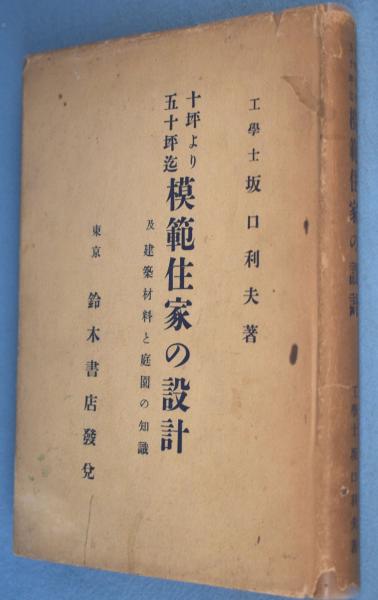 工學士 坂口利夫著
十坪より
五十坪迄
模範住家の設計
及 建築材料と庭園の知識
東京 鈴木書店發兌
模範住家の設計
工學士坂口利夫著